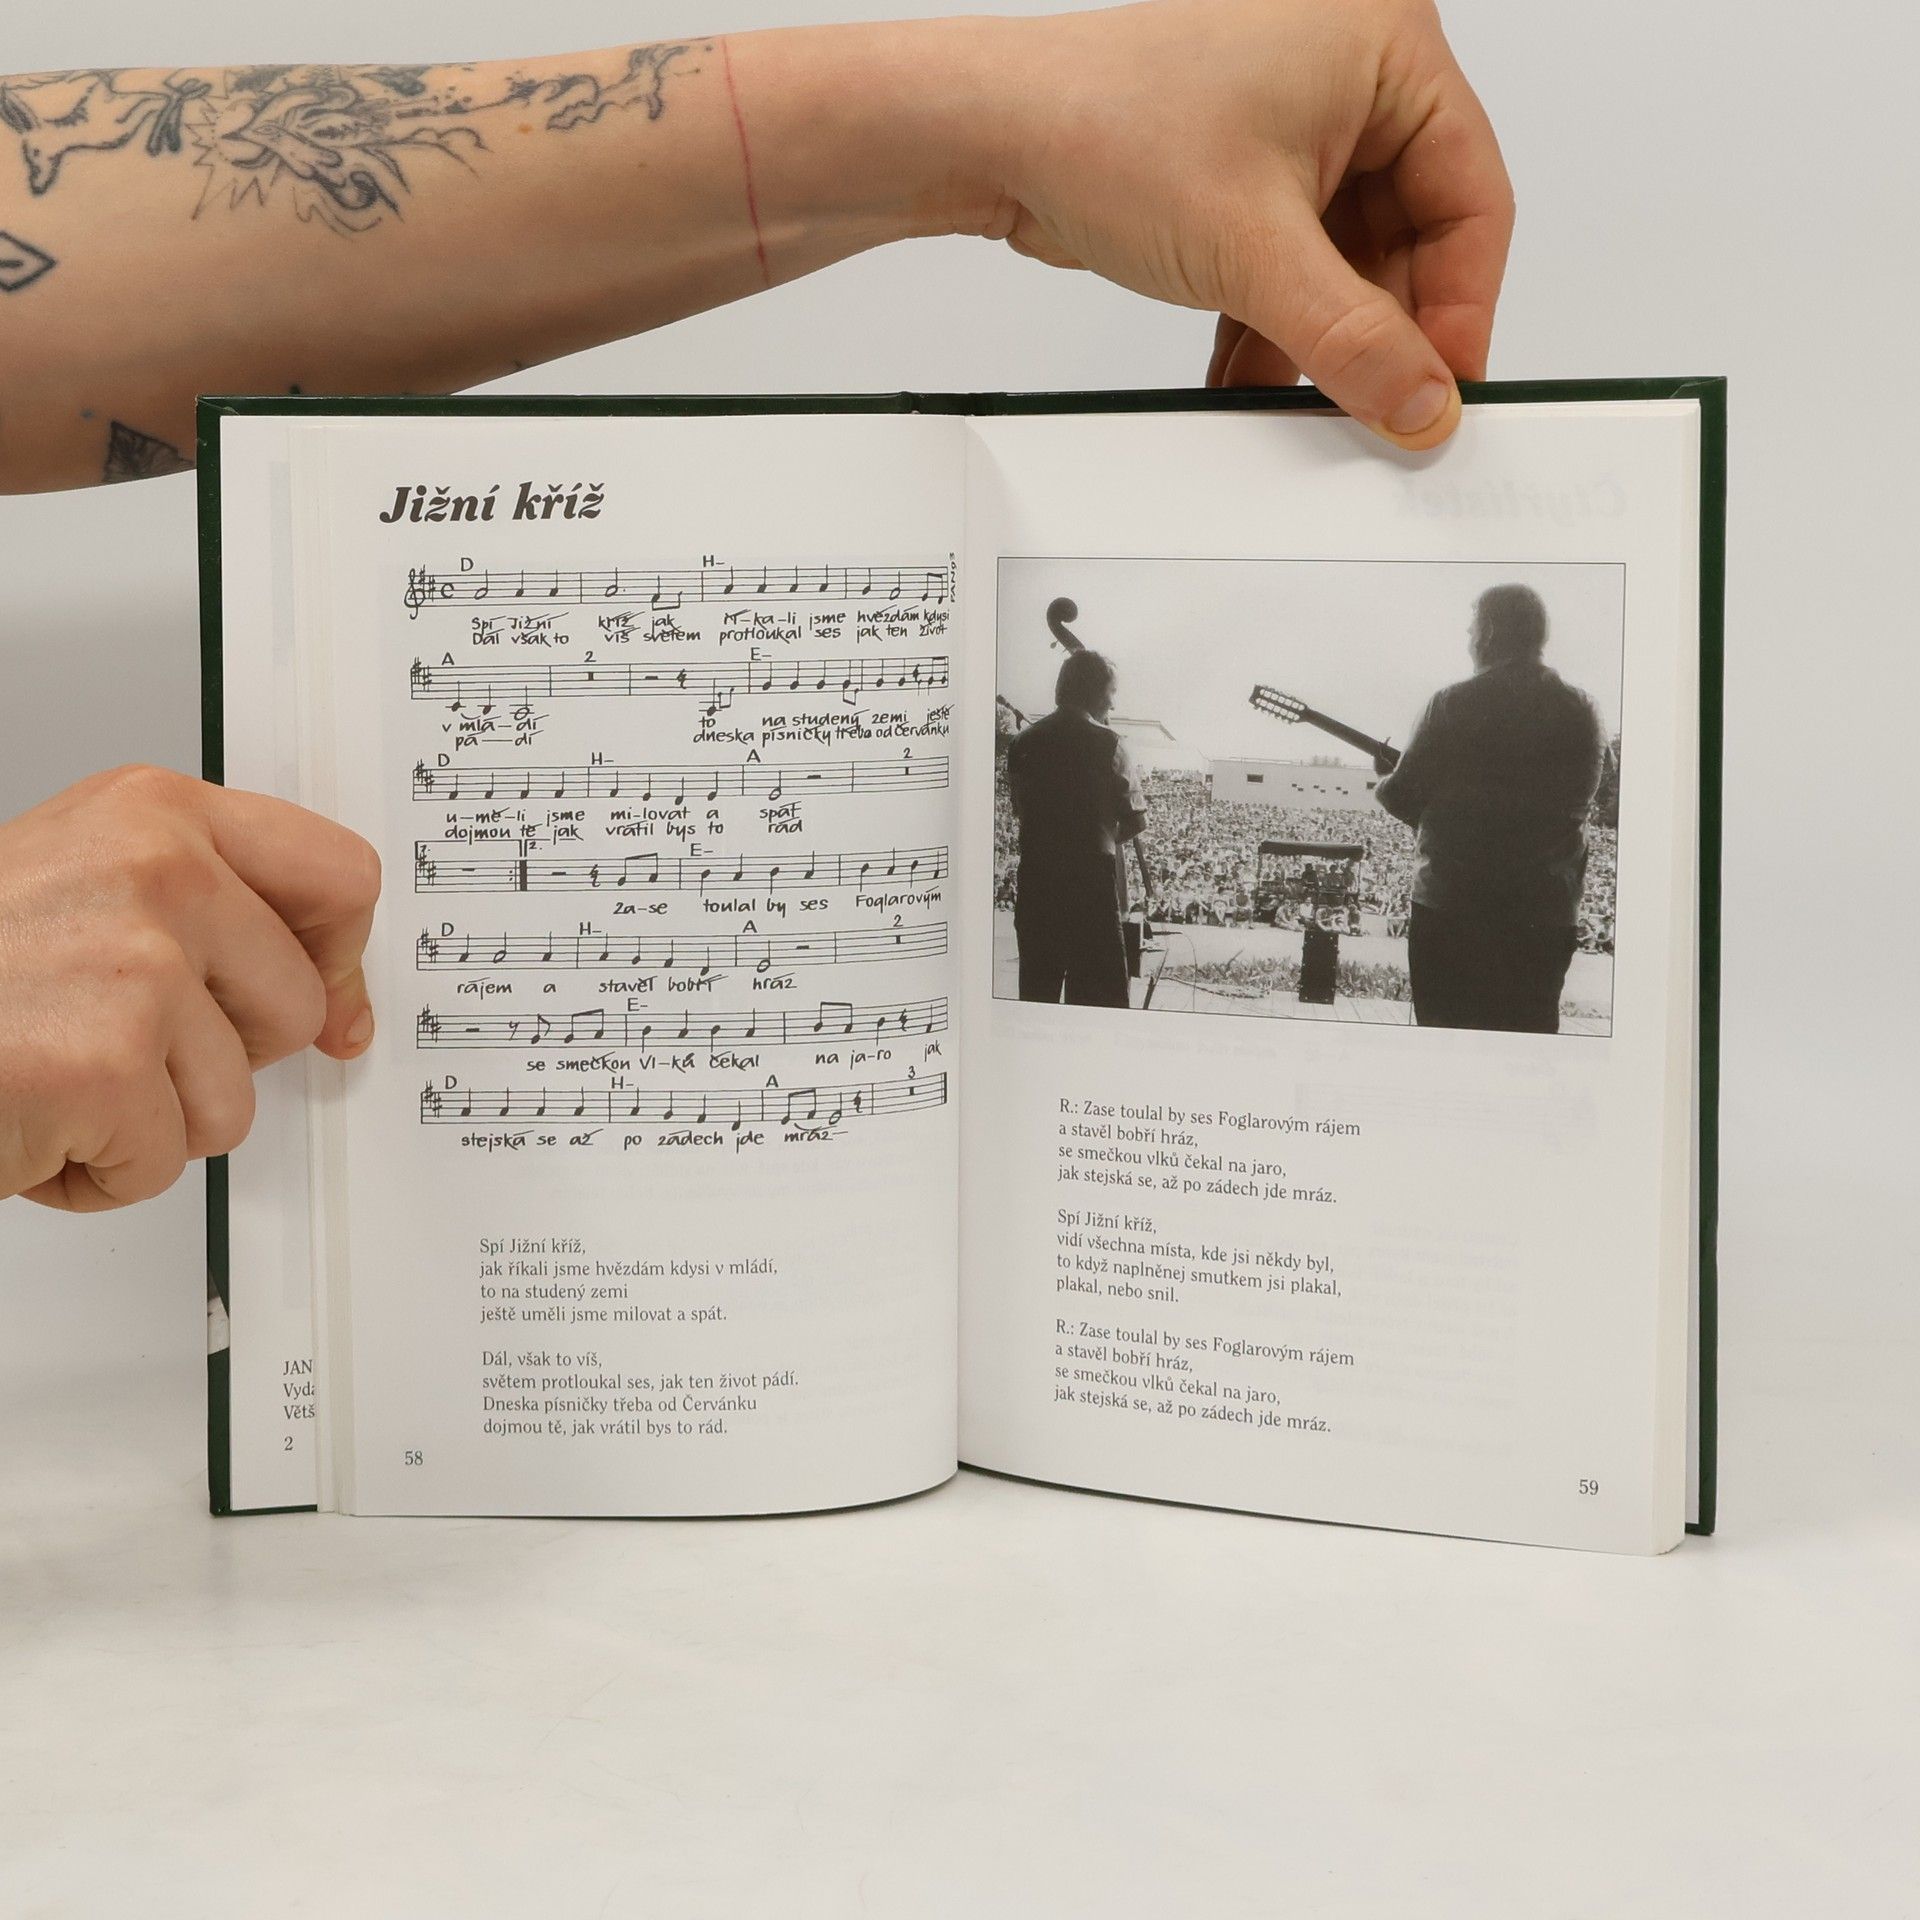 Jižní kříž
D H–
Spí Jižní kříž jak ří–ka–li jsme hvězdám kdysi
Dál však to víš světem protloukal ses jak ten život
A 2 E–
v mlá–dí to na studený zemi ještě
pá–dí dneska písničky třeba od Červánku
D H– A 2
u–mě–li jsme mi–lovat a spát
dojmou tě jak vrátil bys to rád
1. 2. E–
Za–se toulal by ses Foglarovým
D H– A 2
rájem a stavěl bobří hráz
E–
se smečkou vl–ků čekal na ja–ro jak
D H– A 3
stejská se až po zádech jde mráz
Spí Jižní kříž,
jak říkali jsme hvězdám kdysi v mládí,
to na studený zemi
ještě uměli jsme milovat a spát.
Dál, však to víš,
světem protloukal ses, jak ten život pádí.
Dneska písničky třeba od Červánku
dojmou tě, jak vrátil bys to rád.
58
JAN
Vyd
Větš
2
R.: Zase toulal by ses Foglarovým rájem
a stavěl bobří hráz,
se smečkou vlků čekal na jaro,
jak stejská se, až po zádech jde mráz.
Spí Jižní kříž,
vidí všechna místa, kde jsi někdy byl,
to když naplněnej smutkem jsi plakal,
plakal, nebo snil.
R.: Zase toulal by ses Foglarovým rájem
a stavěl bobří hráz,
se smečkou vlků čekal na jaro,
jak stejská se, až po zádech jde mráz.
59